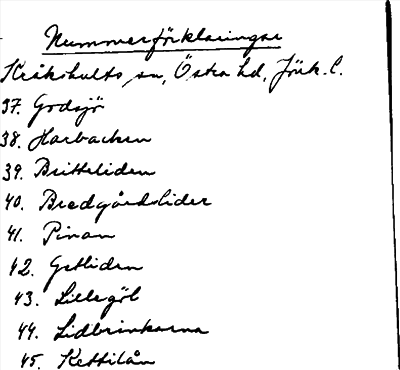 Nummerförklaringar
Kråkshults sn, Östra hd, Jönk. l.
37. Godsjö
38. Harbacken
39. Britteliden
40. Bredgårdslider
41. Pinan
42. Getliden
43. Lillegöl
44. Lidbrinkarna
45. Kettilån